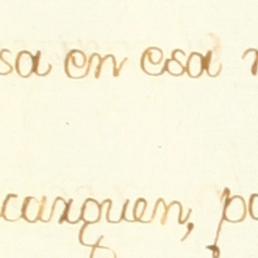 sa en esa
carquen, po